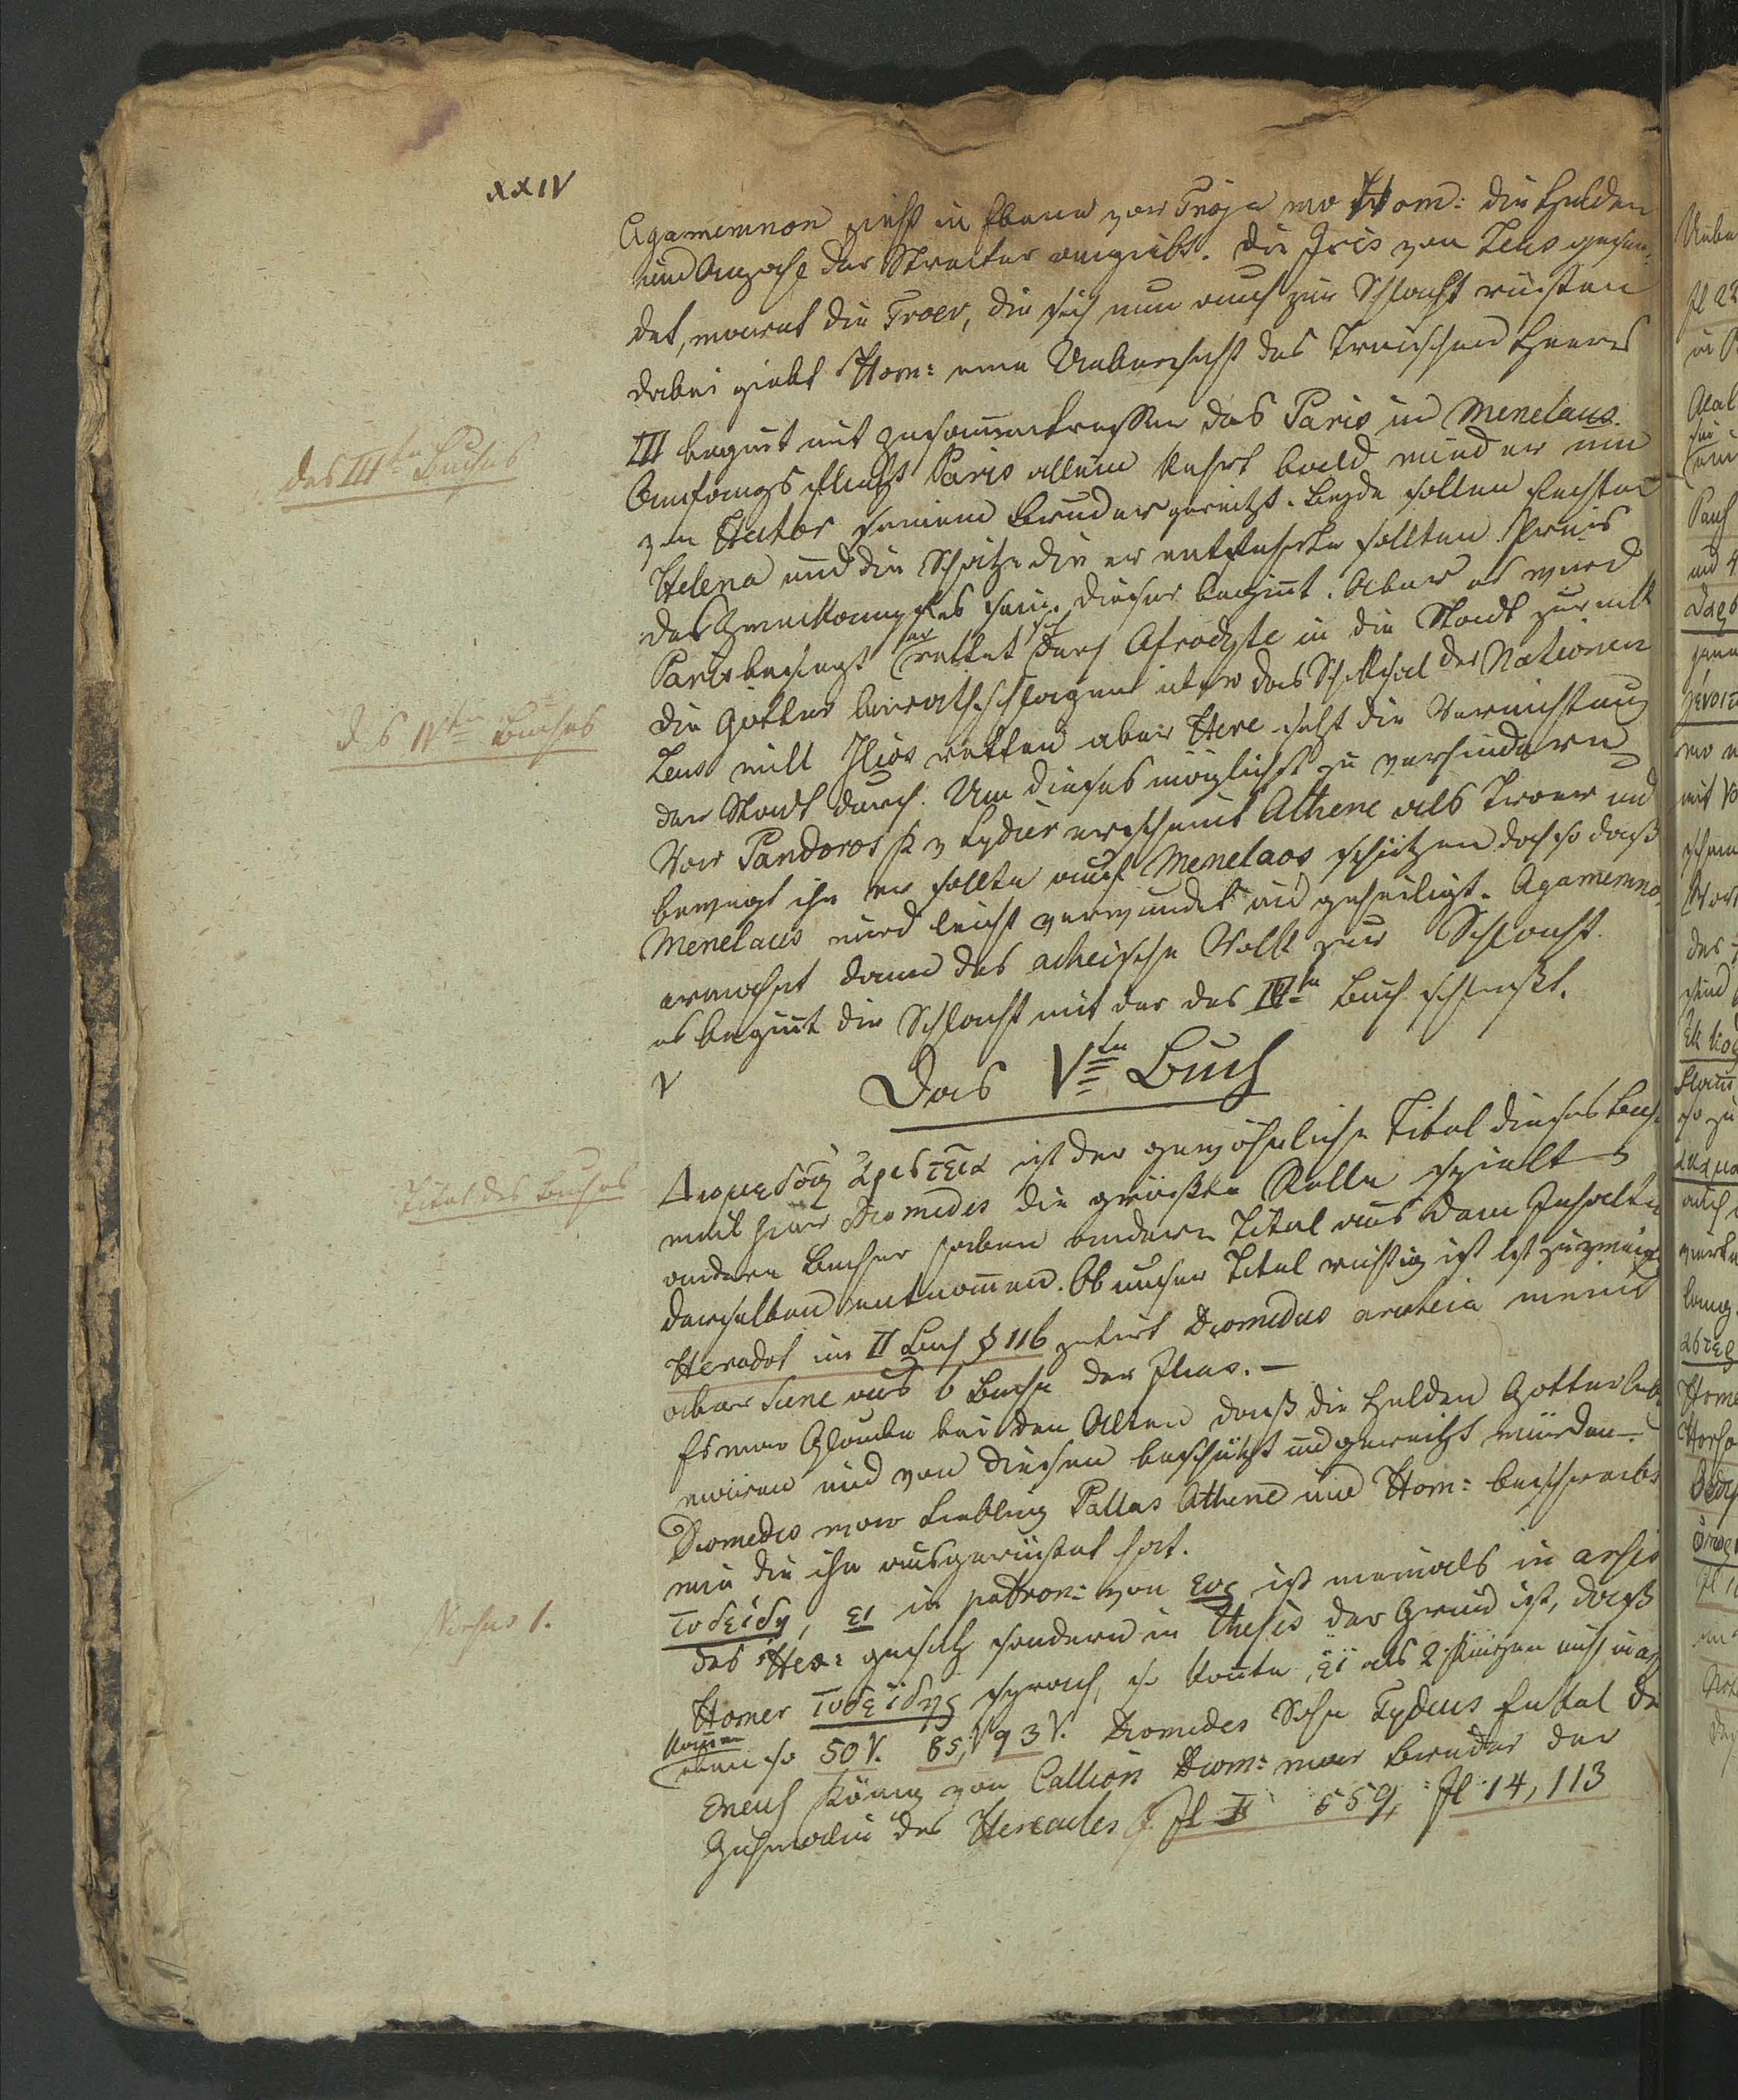 XXIV
Agamemnon zieht in Ebene vor Troja wo Hom: die Helden
und Anzahl der Streiter angiebt. Die Iris von Zeus gesen-
det, warnt die Troer, die sich nun auch zur Schlacht rüsten
dabei giebt Hom: eine Uebersicht des Troischen Heeres
des IIIten Buches
III beginnt mit Zusammentreffen des Paris und Menelaus.
Anfangs flieht Paris allein kehrt bald wieder um
von Hector seinem Bruder gereitzt. Beyde sollen fechten
Helena und die Schätze die er entfuhrte sollten Preis
des Zweikampfes sein. Dieser beginnt. Aber es wird
Paris besiegt er rettet sich durch Afrodyte in die Stadt zurück
des IVten Buches
die Götter berathschlagen über das Schicksal der Nationen
Zeus will Ilios retten aber Here setzt die Vernichtung
der Stadt durch. Um dieses möglichst zu verhindern
Vor Pandoros erscheint Athene als Troer und
bewegt ihn er sollte auf Menelaos schützen doch so daß
Menelaus wird leicht verwundet und geheiligt. Agamemno
ermahnt dann das acheische Volk zur Schlacht.
es beginnt die Schlacht mit der das IVte Buch schließt.
V Das Vte Buch
Titel des Buches
Διομεδους ἀριστεῖα ist der gewöhnliche Titel dieses Buch
weil hier Diomedes die größte Rolle spielt
andere Bucher haben andere Titel aus dem Inhalte
derselben entnommen. Ob unser Titel richtig ist ist zuzweife
Herodot im II Buch § 116 zitirt Diomedes aristeia
aber aus 6 Buche der Ilias. —
Es war Glaube bei den Alten daß die Helden Götterlieb
wären und von diesen beschützt und gereitzt würden.
Diomedes war Liebling Pallas Athene und Hom: beschreibt
wie die ihn ausgerüstet hat.
Versus 1.
Τυδείδῃ, ει in patron: von ευς ist niemals in arsis
des Hex: gesetzt sondern in Thesis der Grund ist, daß
Homer Τυδεΐδης sprach, so konnte εϊ als 2 Kürzen nicht in ars
kommen
eben so 50 V. 85, V 93 V. Diomedes Sohn Tydeus Enkel de
Oeneus König von Diom: war Bruder der
Gehmalin des Hercules Il II 559, Il 14, 113